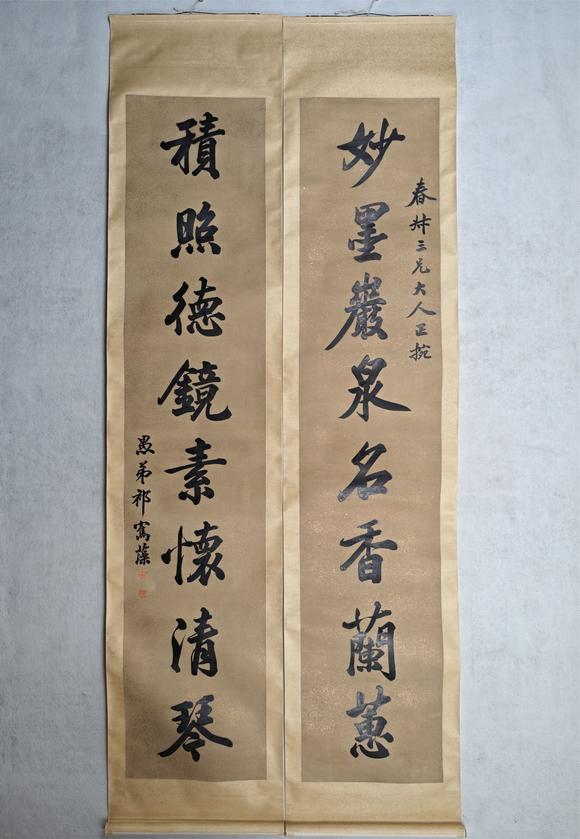 春卉三兄大人正捥
妙墨巖泉名香蘭蕙
積照德鏡素懷清琴
愚弟祁寯藻